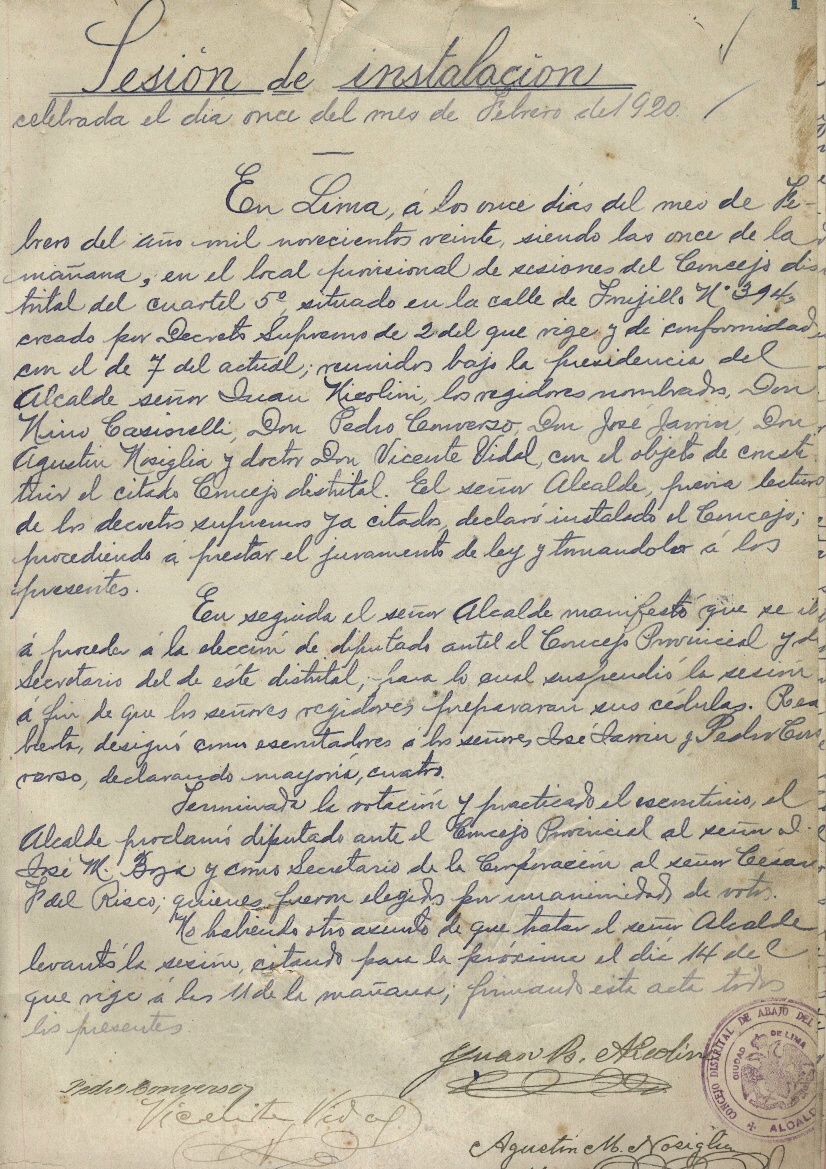 Sesión de instalación
celebrada el día once del mes de Febrero de 1920.
En Lima, á los once días del mes de Fe-
brero del año mil novecientos veinte, siendo las once de la
mañana, en el local provisional de sesiones del Concejo dis
trital del cuartel 5º, situado en la calle de Trujillo Nº 394,
creado por Decreto Supremo de 2 del que rige y de conformidad
con el de 7 del actual; reunidos bajo la presidencia del
Alcalde señor Juan Nicolini, los regidores nombrados, Don
Nino Don Pedro Converso, Don José Don
Agustin Nosiglia y doctor Don Vicente Vidal, con el objeto de consti
tuir el citado Concejo distrital. El señor Alcalde, previa lectura
de los decretos supremos ya citados, declaró instalado el Concejo;
procediendo á prestar el juramento de ley y tomandolo á los
presentes.
En seguida el señor Alcalde manifestó que se iba
á proceder á la elección de diputado ante el Concejo Provincial y de
Secretario del de este distrital, para lo cual suspendió la sesión
á fin de que los señores regidores prepararan sus cédulas. Rea
bierta, designó como escrutadores á los señores José y Pedro Con
verso, declarando mayoría, cuatro.
Terminada la votación y practicado el escrutinio, el
Alcalde proclamó diputado ante el Concejo Provincial al señor D.
José M. y como Secretario de la Corporación al señor César
F. del Risco; quienes fueron elegidos por unanimidad de votos.
No habiendo otro asunto de que tratar el señor Alcalde
levantó la sesión, citando para la próxima el día 14 del
que rige á las 11 de la mañana; firmando esta acta todos
los presentes.
Juan B. Nicolini
Pedro Converso
Vicente Vidal
Agustin M. Nosiglia
CONCEJO DISTRITAL DE ABAJO DEL
CIUDAD DE LIMA
ALCALD